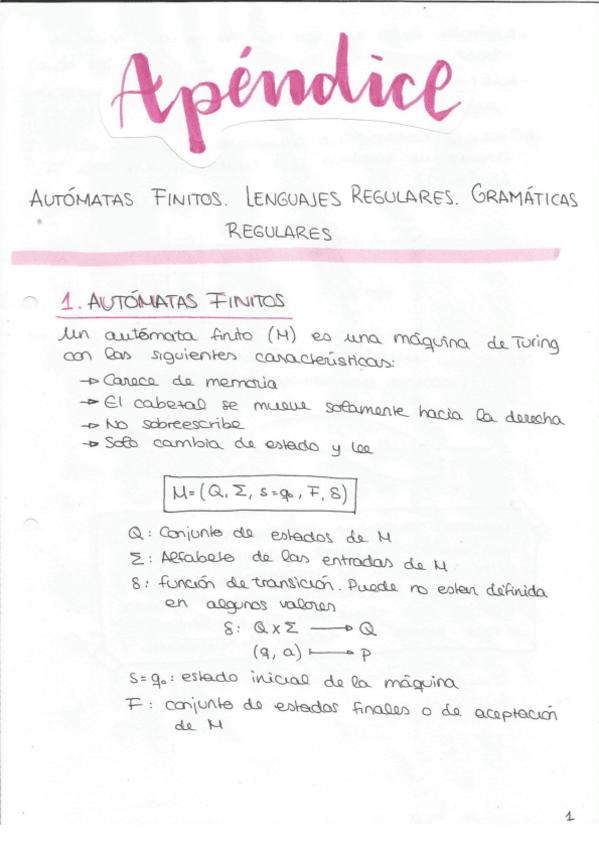 Apéndice
AUTÓMATAS FINITOS. LENGUAJES REGULARES. GRAMÁTICAS
REGULARES
1. AUTÓMATAS FINITOS
Un autómata finito (M) es una máquina de Turing
con las siguientes características:
→ Carece de memoria
→ El cabezal se mueve solamente hacia la derecha
→ No sobreescribe
→ Solo cambia de estado y lee
M=(Q, Σ, s=q₀, F, δ)
Q: Conjunto de estados de M
Σ: Alfabeto de las entradas de M
δ: función de transición. Puede no estar definida
en algunos valores
δ: Q x Σ ⟶ Q
(q, a) ⟼ p
s=q₀: estado inicial de la máquina
F: conjunto de estados finales o de aceptación
de M
1